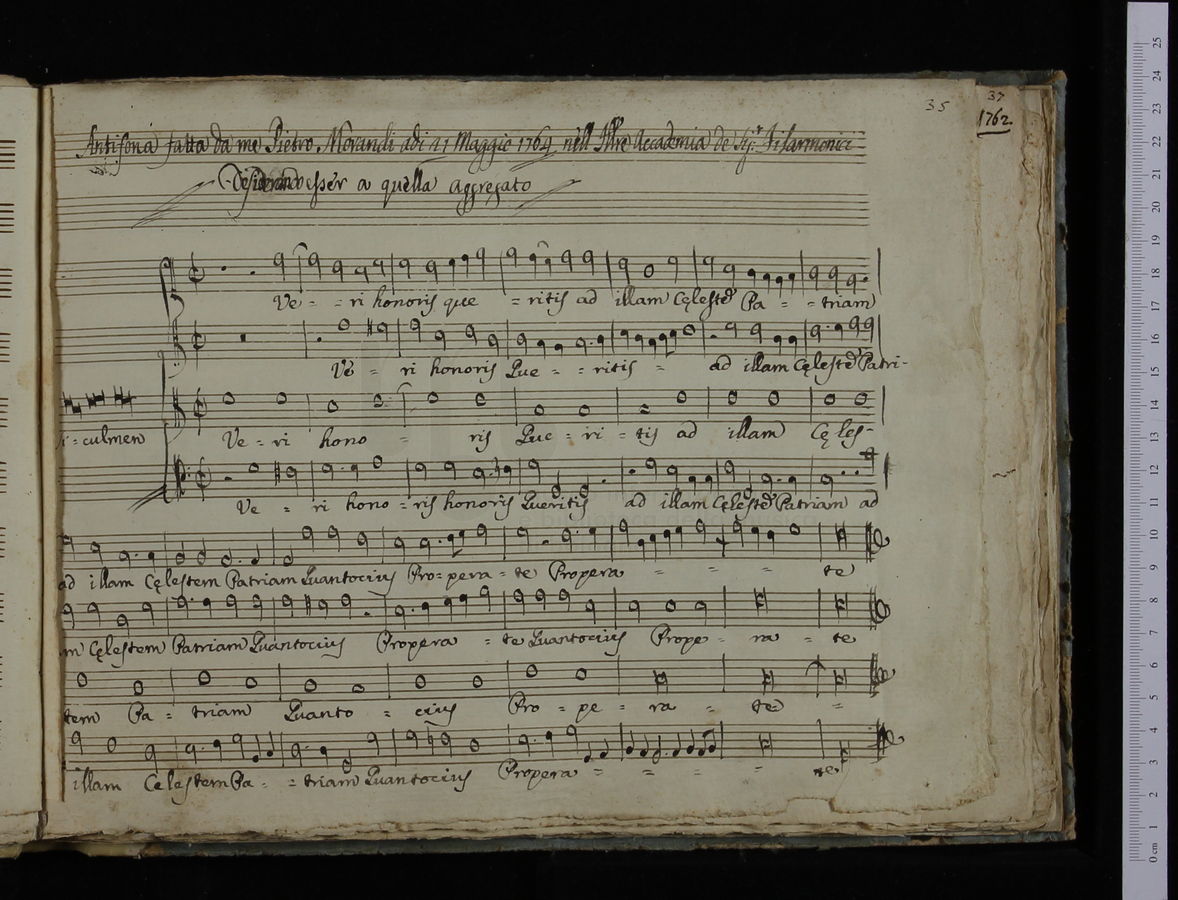 35
37
1762
Antifona fatta da me Pietro Morandi adi 21 Maggio 1764 nell Illre Accademia de Sig.r Filarmonici
Desiderando esser a quella aggregato
Ve - - ri honoris que - ritis ad illam Cęleste Pa - - triam
Ve - ri honoris Que - - ritis - ad illam Cęleste Patri-
i-culmen
Ve - ri hono - ris Que - ri - tis ad illam Cę les-
Ve - ri hono - ris honoris Queritis ad illam Cęleste Patriam ad
ad illam Cęlestem Patriam Quantocius Pro-pera - te Propera - - - te
m Cęlestem Patriam Quantocius Propera - te Quantocius Prope - ra - te
tem Pa - triam Quanto - cius Pro - pe - ra - te -
illam Cęlestem Pa - - triam Quantocius Propera - - - - te
0 cm 1 2 3 4 5 6 7 8 9 10 11 12 13 14 15 16 17 18 19 20 21 22 23 24 25